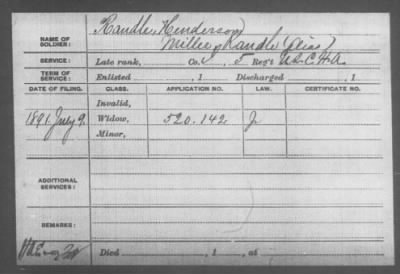 NAME OF SOLDIER:
Randle, Henderson
Miller, Randle (alias)
SERVICE: Late rank, Co. 5 Reg't U.S.C.H.A.
TERM OF SERVICE: Enlisted , 1 Discharged , 1
DATE OF FILING. CLASS. APPLICATION NO. LAW. CERTIFICATE NO.
Invalid,
1891 July 9. Widow, 520.142 J
Minor,
ADDITIONAL SERVICES:
REMARKS:
Died , 1 , at